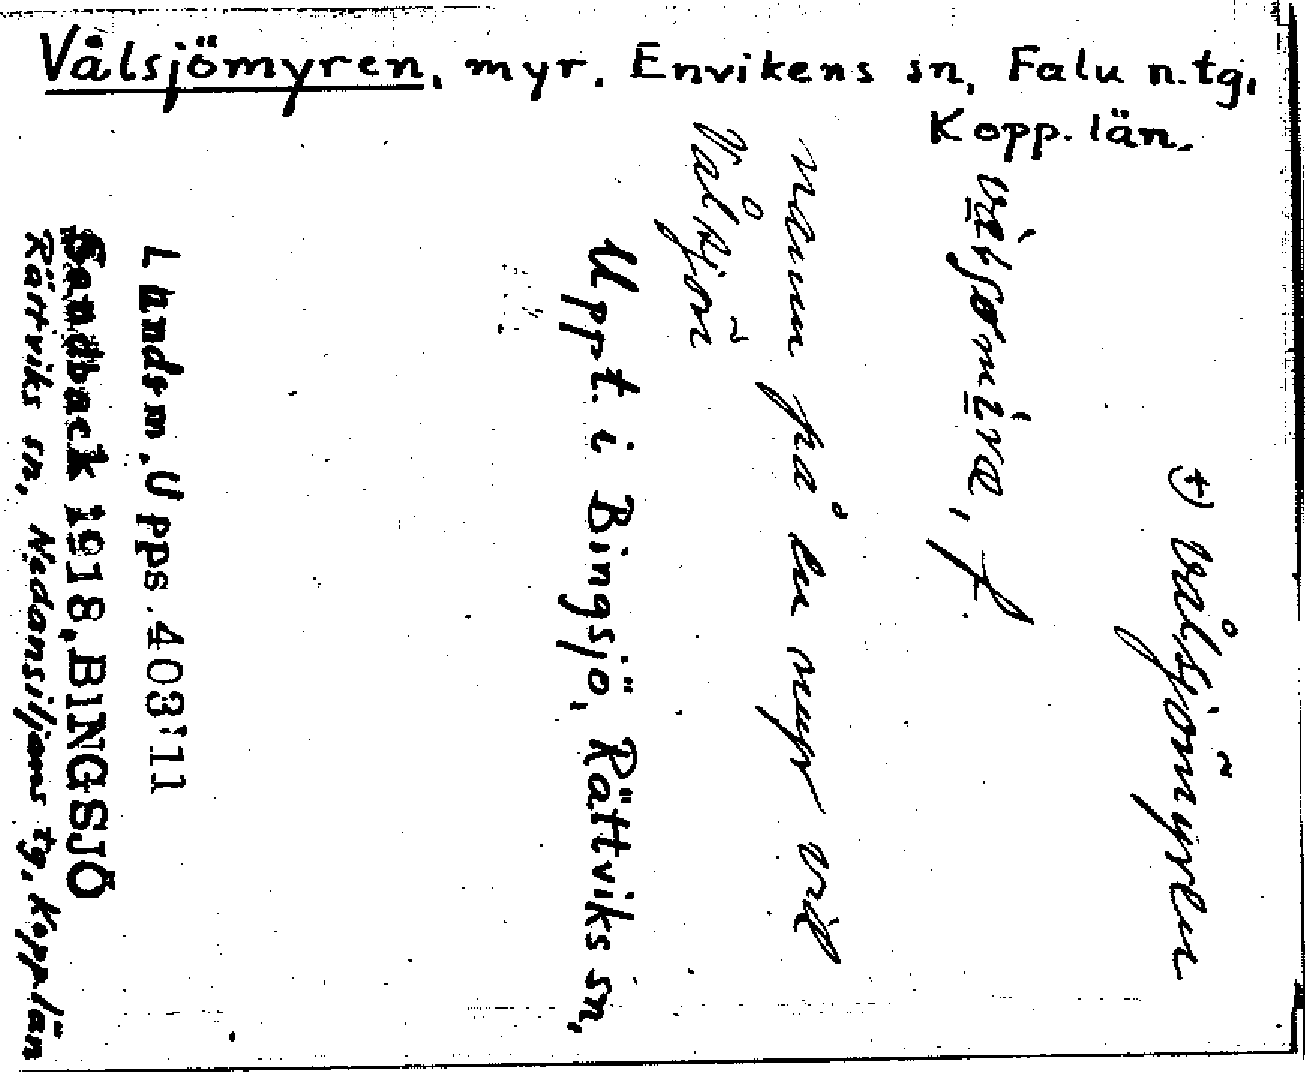 Vålsjömyren, myr. Envikens sn, Falu n. tg,
Kopp. län.
†) vålsjömyren
f.
namn på en myr vid
Valsjön
Uppt. i Bingsjö, Rättviks sn,
Landsm. Upps. 403:11
Sandback 1918, BINGSJÖ
Rättviks sn, Nedansiljans tg, Kopp. län